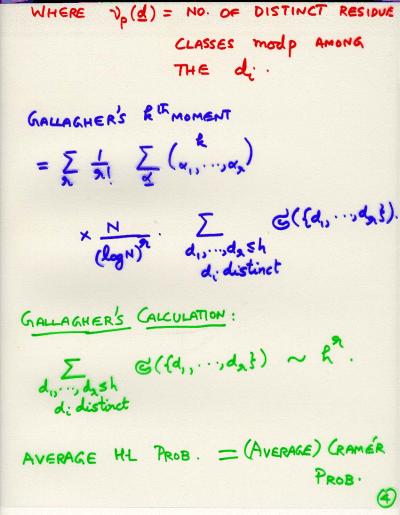 WHERE ν_p(d) = NO. OF DISTINCT RESIDUE
CLASSES mod p AMONG
THE d_i.
GALLAGHER'S k^th MOMENT
= Σ_r 1/r! Σ_α (k / α_1,...,α_r)
× N/(log N)^r · Σ_{d_1,...,d_r ≤ h, d_i distinct} 𝔖({d_1,...,d_r}).
GALLAGHER'S CALCULATION:
Σ_{d_1,...,d_r ≤ h, d_i distinct} 𝔖({d_1,...,d_r}) ~ h^r.
AVERAGE H-L PROB. = (AVERAGE) CRAMÉR
PROB.
4